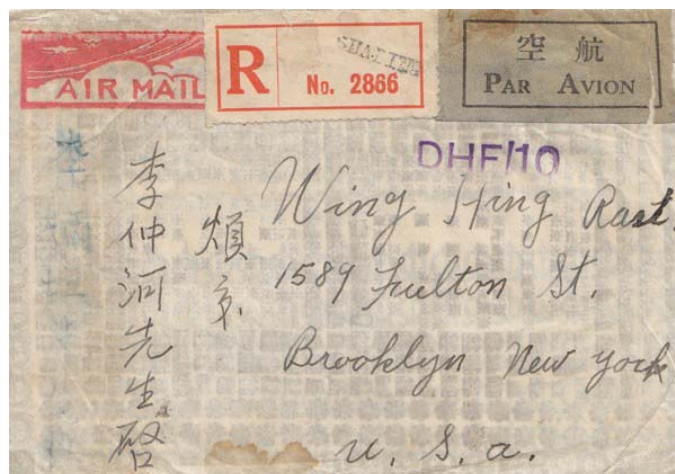 AIR MAIL
R
No. 2866
空航
PAR AVION
DHF/10
Wing Hing Rast.
1589 Fulton St.
Brooklyn New York
U. S. A.
煩交
李仲河先生啓